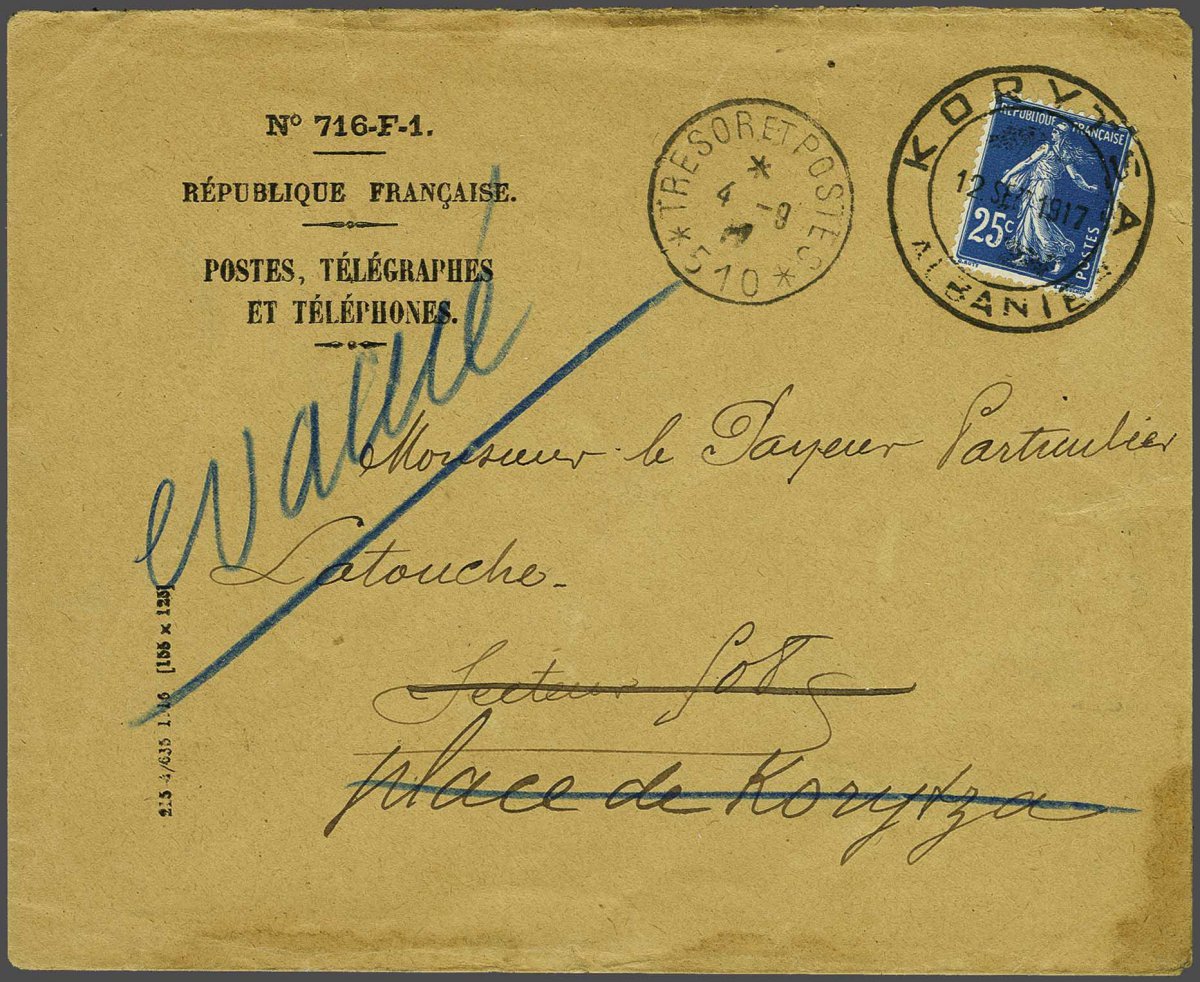 Nº 716-F-1.
RÉPUBLIQUE FRANÇAISE.
POSTES, TÉLÉGRAPHES
ET TÉLÉPHONES.
* TRESOR ET POSTES *
4 -9
510
KORYTSA
12 SEPT 1917
ALBANIE
RÉPUBLIQUE FRANÇAISE
25c
POSTES
evacué
Monsieur le Payeur Particulier
Latouche.
Secteur 508
place de Korytza
215-4/635 1.16 [155 x 125]